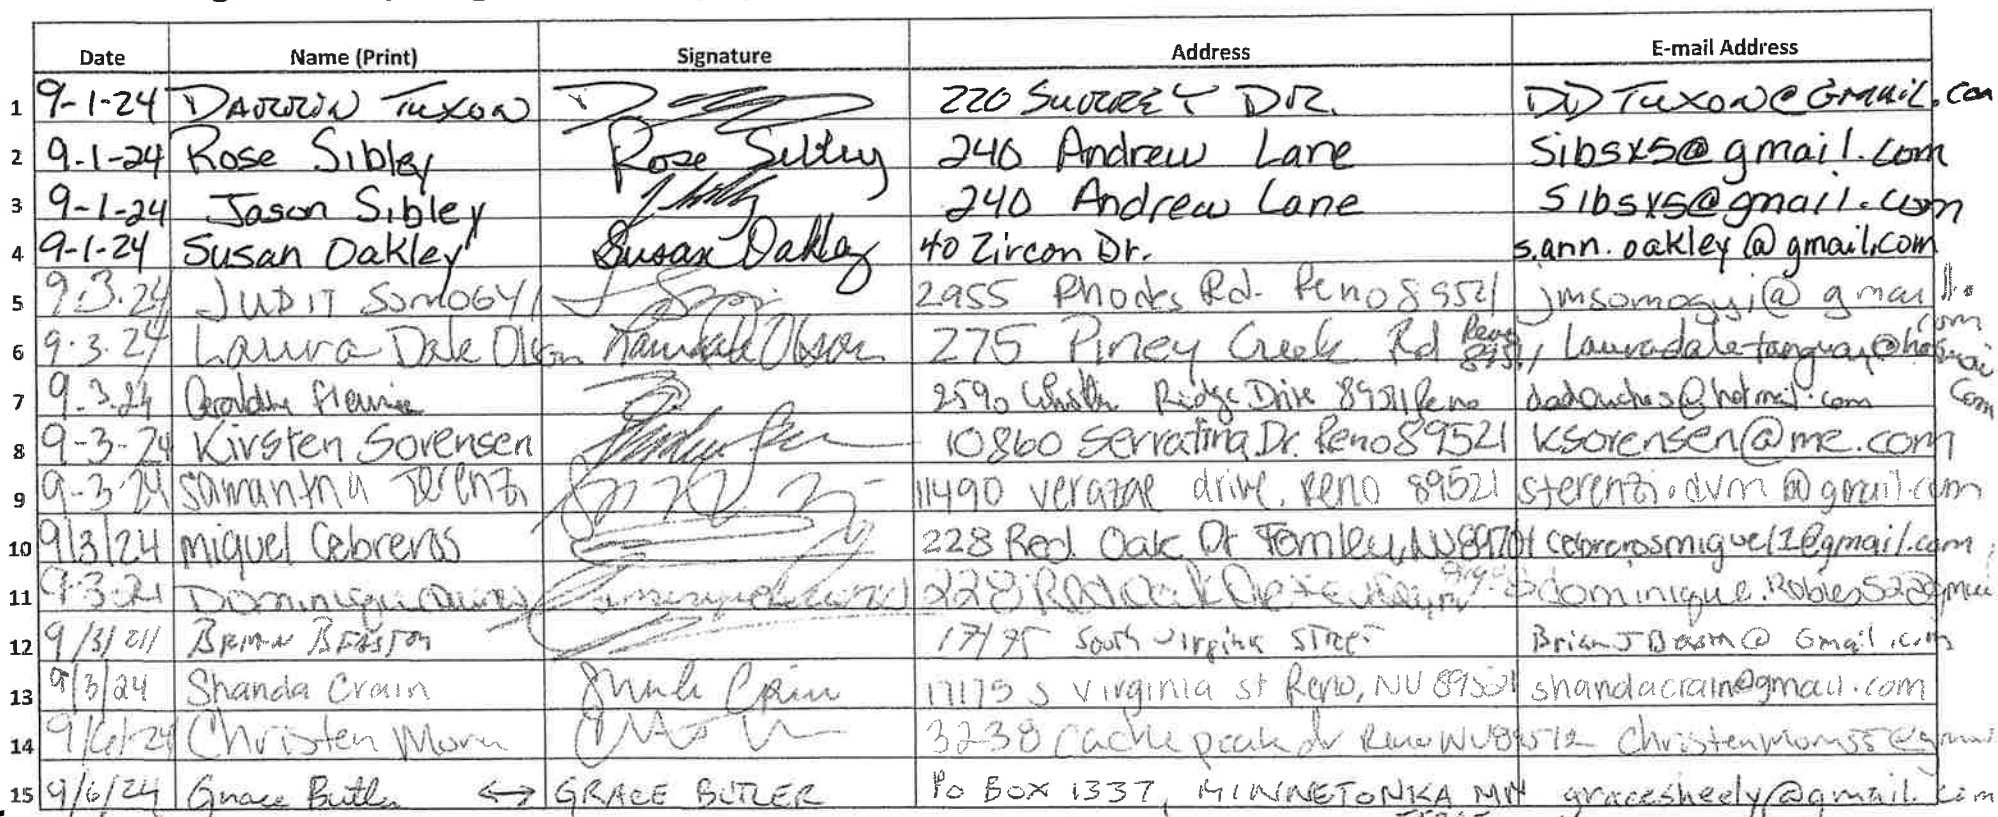 Date Name (Print) Signature Address E-mail Address
1 9-1-24 DARRIN TUXON 220 SURREY DR. DDTUXON@GMAIL.com
2 9-1-24 Rose Sibley Rose Sibley 240 Andrew Lane Sibsx5@gmail.com
3 9-1-24 Jason Sibley 240 Andrew Lane Sibsx5@gmail.com
4 9-1-24 Susan Oakley Susan Oakley 40 Zircon Dr. s.ann.oakley@gmail.com
5 9.3.24 JUDIT SOMOGYI 2955 Rhodes Rd. Reno 89521 jmsomogyi@gmail.com
6 9.3.24 Laura Dale Olson Lauradale Olson 275 Piney Creek Rd Reno
7 9.3.24 Ridge Drive Reno
8 9-3-24 Kirsten Sorensen 10860 Serratina Dr. Reno 89521 ksorensen@me.com
9 9-3-24 Samantha Terenzi 11490 verazae drive. Reno 89521 sterenzi.dvm@gmail.com
10 9/3/24 miguel Cebreros 228 Red Oak Dr cebrerosmiguel1@gmail.com
11 9-3-24 228 Red Oak
12 9/3/24 17175 South Virginia Street
13 9/3/24 Shanda Crain 17175 S Virginia st Reno, NV shandacrain@gmail.com
14 9/6/24 Christen 3238 peak dr Reno NV
15 9/6/24 Grace Butler ↔ GRACE BUTLER PO BOX 1337, MINNETONKA MN gracesheely@gmail.com